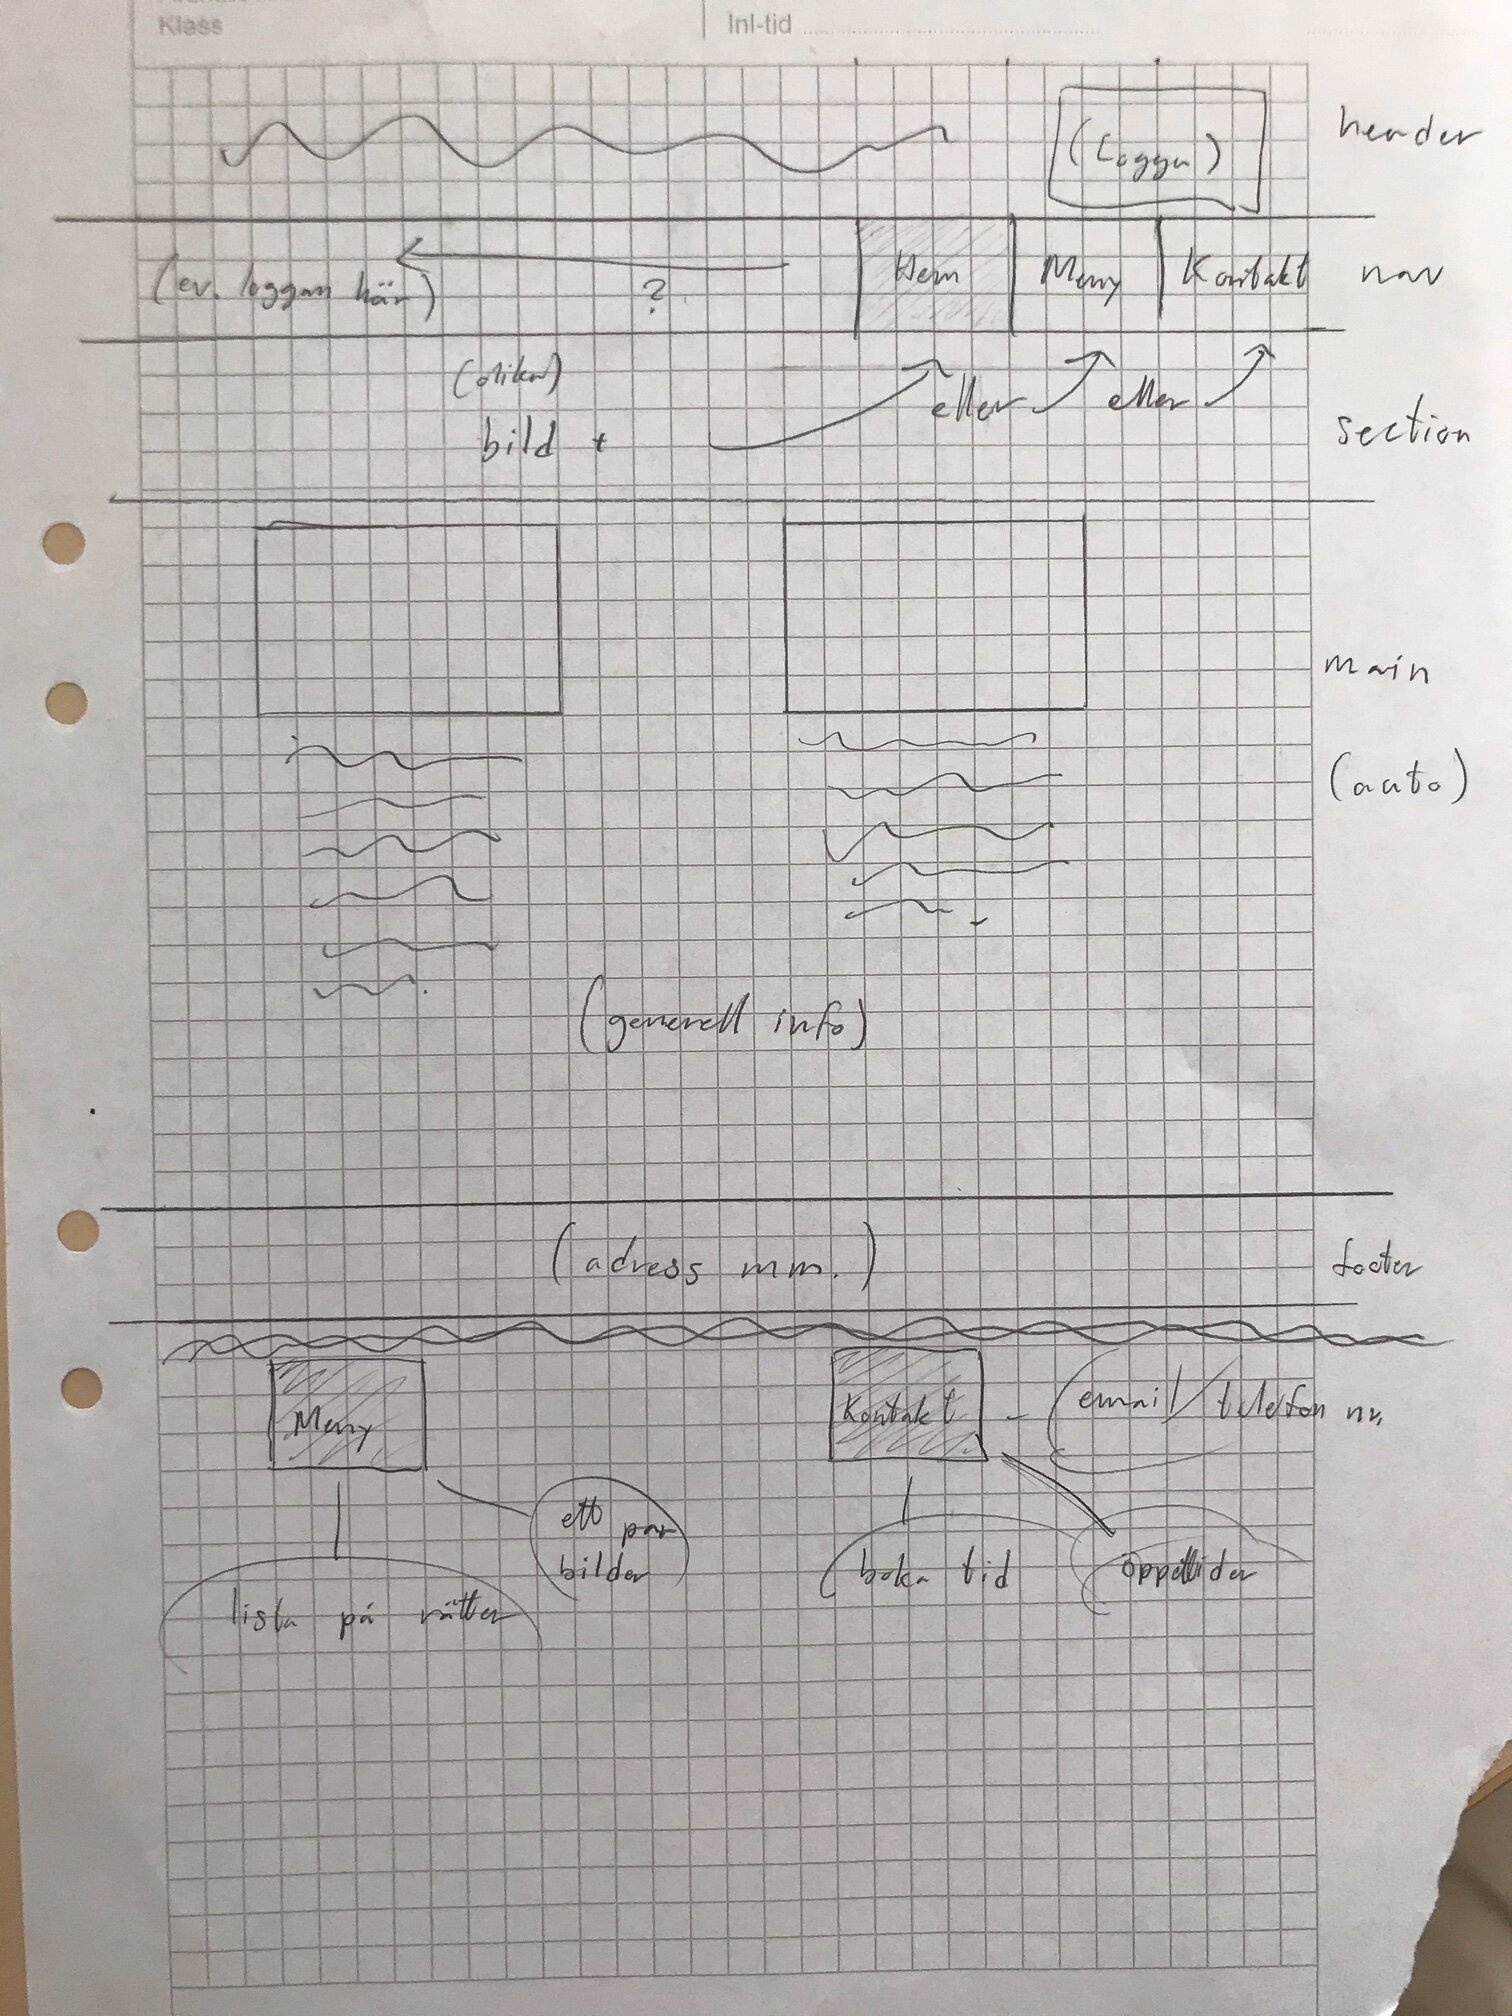 Klass
Inl-tid
(Logga)
header
(ev. loggan här)
?
Hem
Meny
Kontakt
nav
(olika)
bild +
eller
eller
section
main
(auto)
(generell info)
(adress mm.)
footer
Meny
Kontakt
email/telefon nr.
ett par
bilder
lista på rätter
boka tid
öppettider